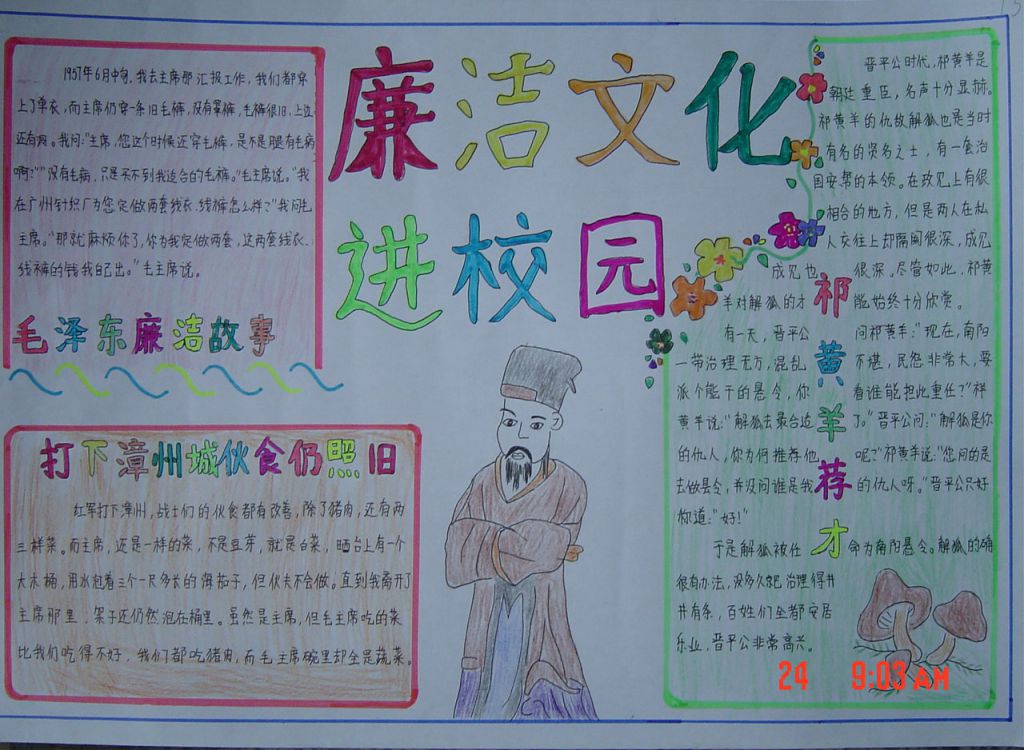 廉洁文化
进校园
1957年6月中旬,我去主席那汇报工作,我们都穿
上了单衣,而主席仍穿一条旧毛裤,没有罩裤,毛裤很旧,上边
还有洞。我问:"主席,您这个时候还穿毛裤,是不是腿有毛病
啊?""没有毛病,只是买不到我适合的毛裤。"毛主席说。"我
在广州针织厂为您定做两套线衣、线裤怎么样?"我问毛
主席。"那就麻烦你了,你为我定做两套,这两套线衣、
线裤的钱我自己出。"毛主席说。
毛泽东廉洁故事
打下漳州城伙食仍照旧
红军打下漳州,战士们的伙食都有改善,除了猪肉,还有两
三样菜。而主席,还是一样的菜,不是豆芽,就是白菜,晒台上有一个
大木桶,用水泡着三个一尺多长的海茄子,但伙夫不会做。直到我离开了
主席那里,茄子还仍然泡在桶里。虽然是主席,但毛主席吃的菜
比我们吃得不好,我们都吃猪肉,而毛主席碗里却全是蔬菜。
祁黄羊荐才
晋平公时代,祁黄羊是
朝廷重臣,名声十分显赫。
祁黄羊的仇敌解狐也是当时
有名的贤名之士,有一套治
国安邦的本领。在政见上有很
相合的地方,但是两人在私
人交往上却隔阂很深,成见
成见也很深。尽管如此,祁黄
羊对解狐的才能始终十分欣赏。
有一天,晋平公问祁黄羊:"现在,南阳
一带治理无方,混乱不堪,民怨非常大,要
派个能干的县令,你看谁能担此重任?"祁
黄羊说:"解狐去最合适了。"晋平公问:"解狐是你
的仇人,你为何推荐他呢?"祁黄羊说:"您问的是
去做县令,并没问谁是我的仇人呀。"晋平公只好
称道:"好!"
于是解狐被任命为南阳县令。解狐的确
很有办法,没多久把治理得井
井有条,百姓们全都安居
乐业,晋平公非常高兴。
24 9:03 AM